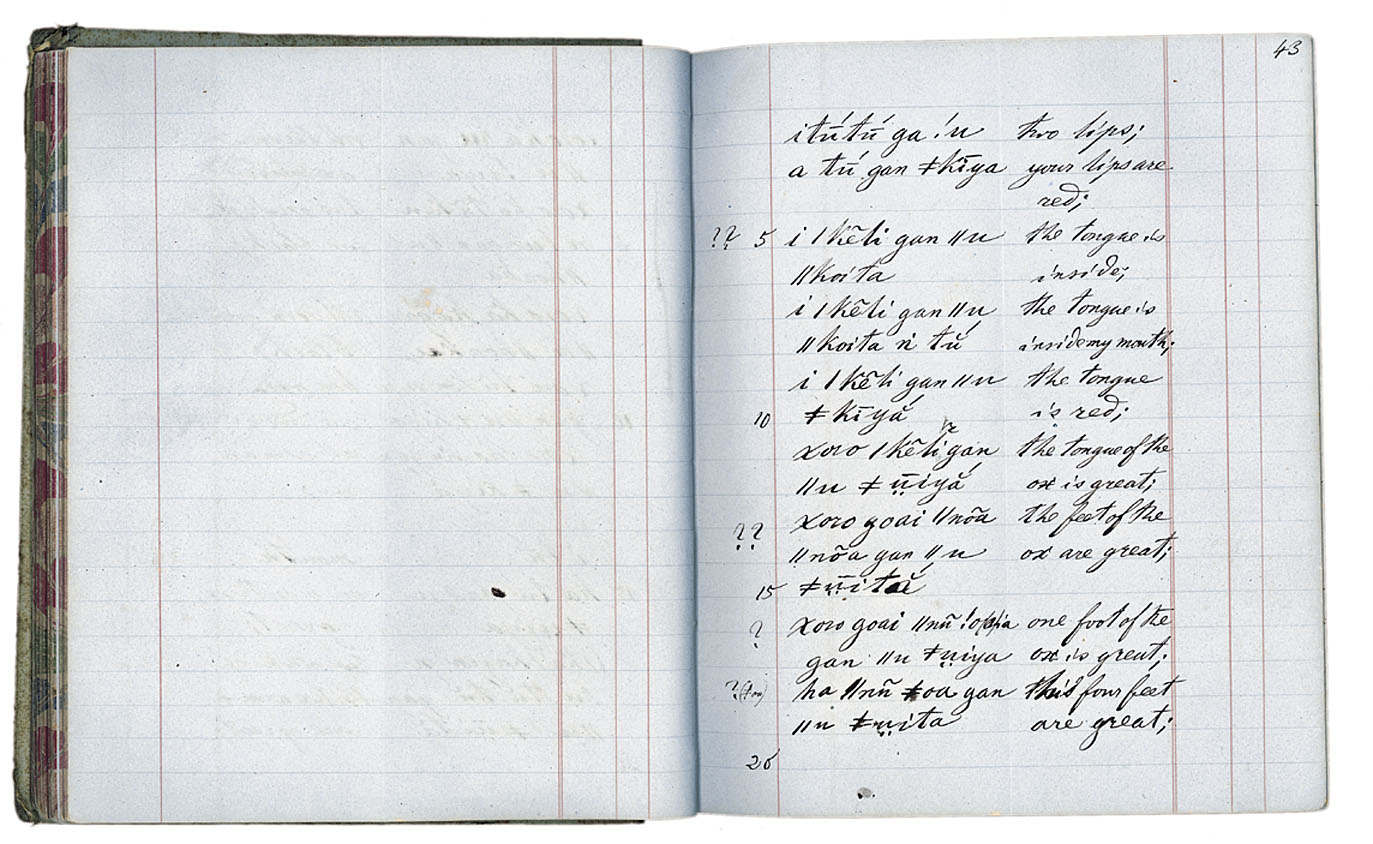 43
i tú́tú́ ga !u two lips;
a tú́ gan ǂkīya your lips are
red;
?? 5 i |kẽli gan ǁu the tongue is
ǁkoíta inside;
i |kẽli gan ǁu the tongue is
ǁkoíta ń tŭ inside my mouth;
i |kẽli gan ǁu the tongue
10 ǂkīyă is red;
xoro |kẽli gan the tongue of the
ǁu ǂṳ̄iyă ox is great;
?? xoro goai ǁnõa the feet of the
ǁnõa gan ǁu ox are great;
15 ǂṳ̄ită
? xoro goai ǁnũ one foot of the
gan ǁu ǂṳiya ox is great;
? ha ǁnũ ǂoa gan this four feet
ǁu ǂṳita are great;
20